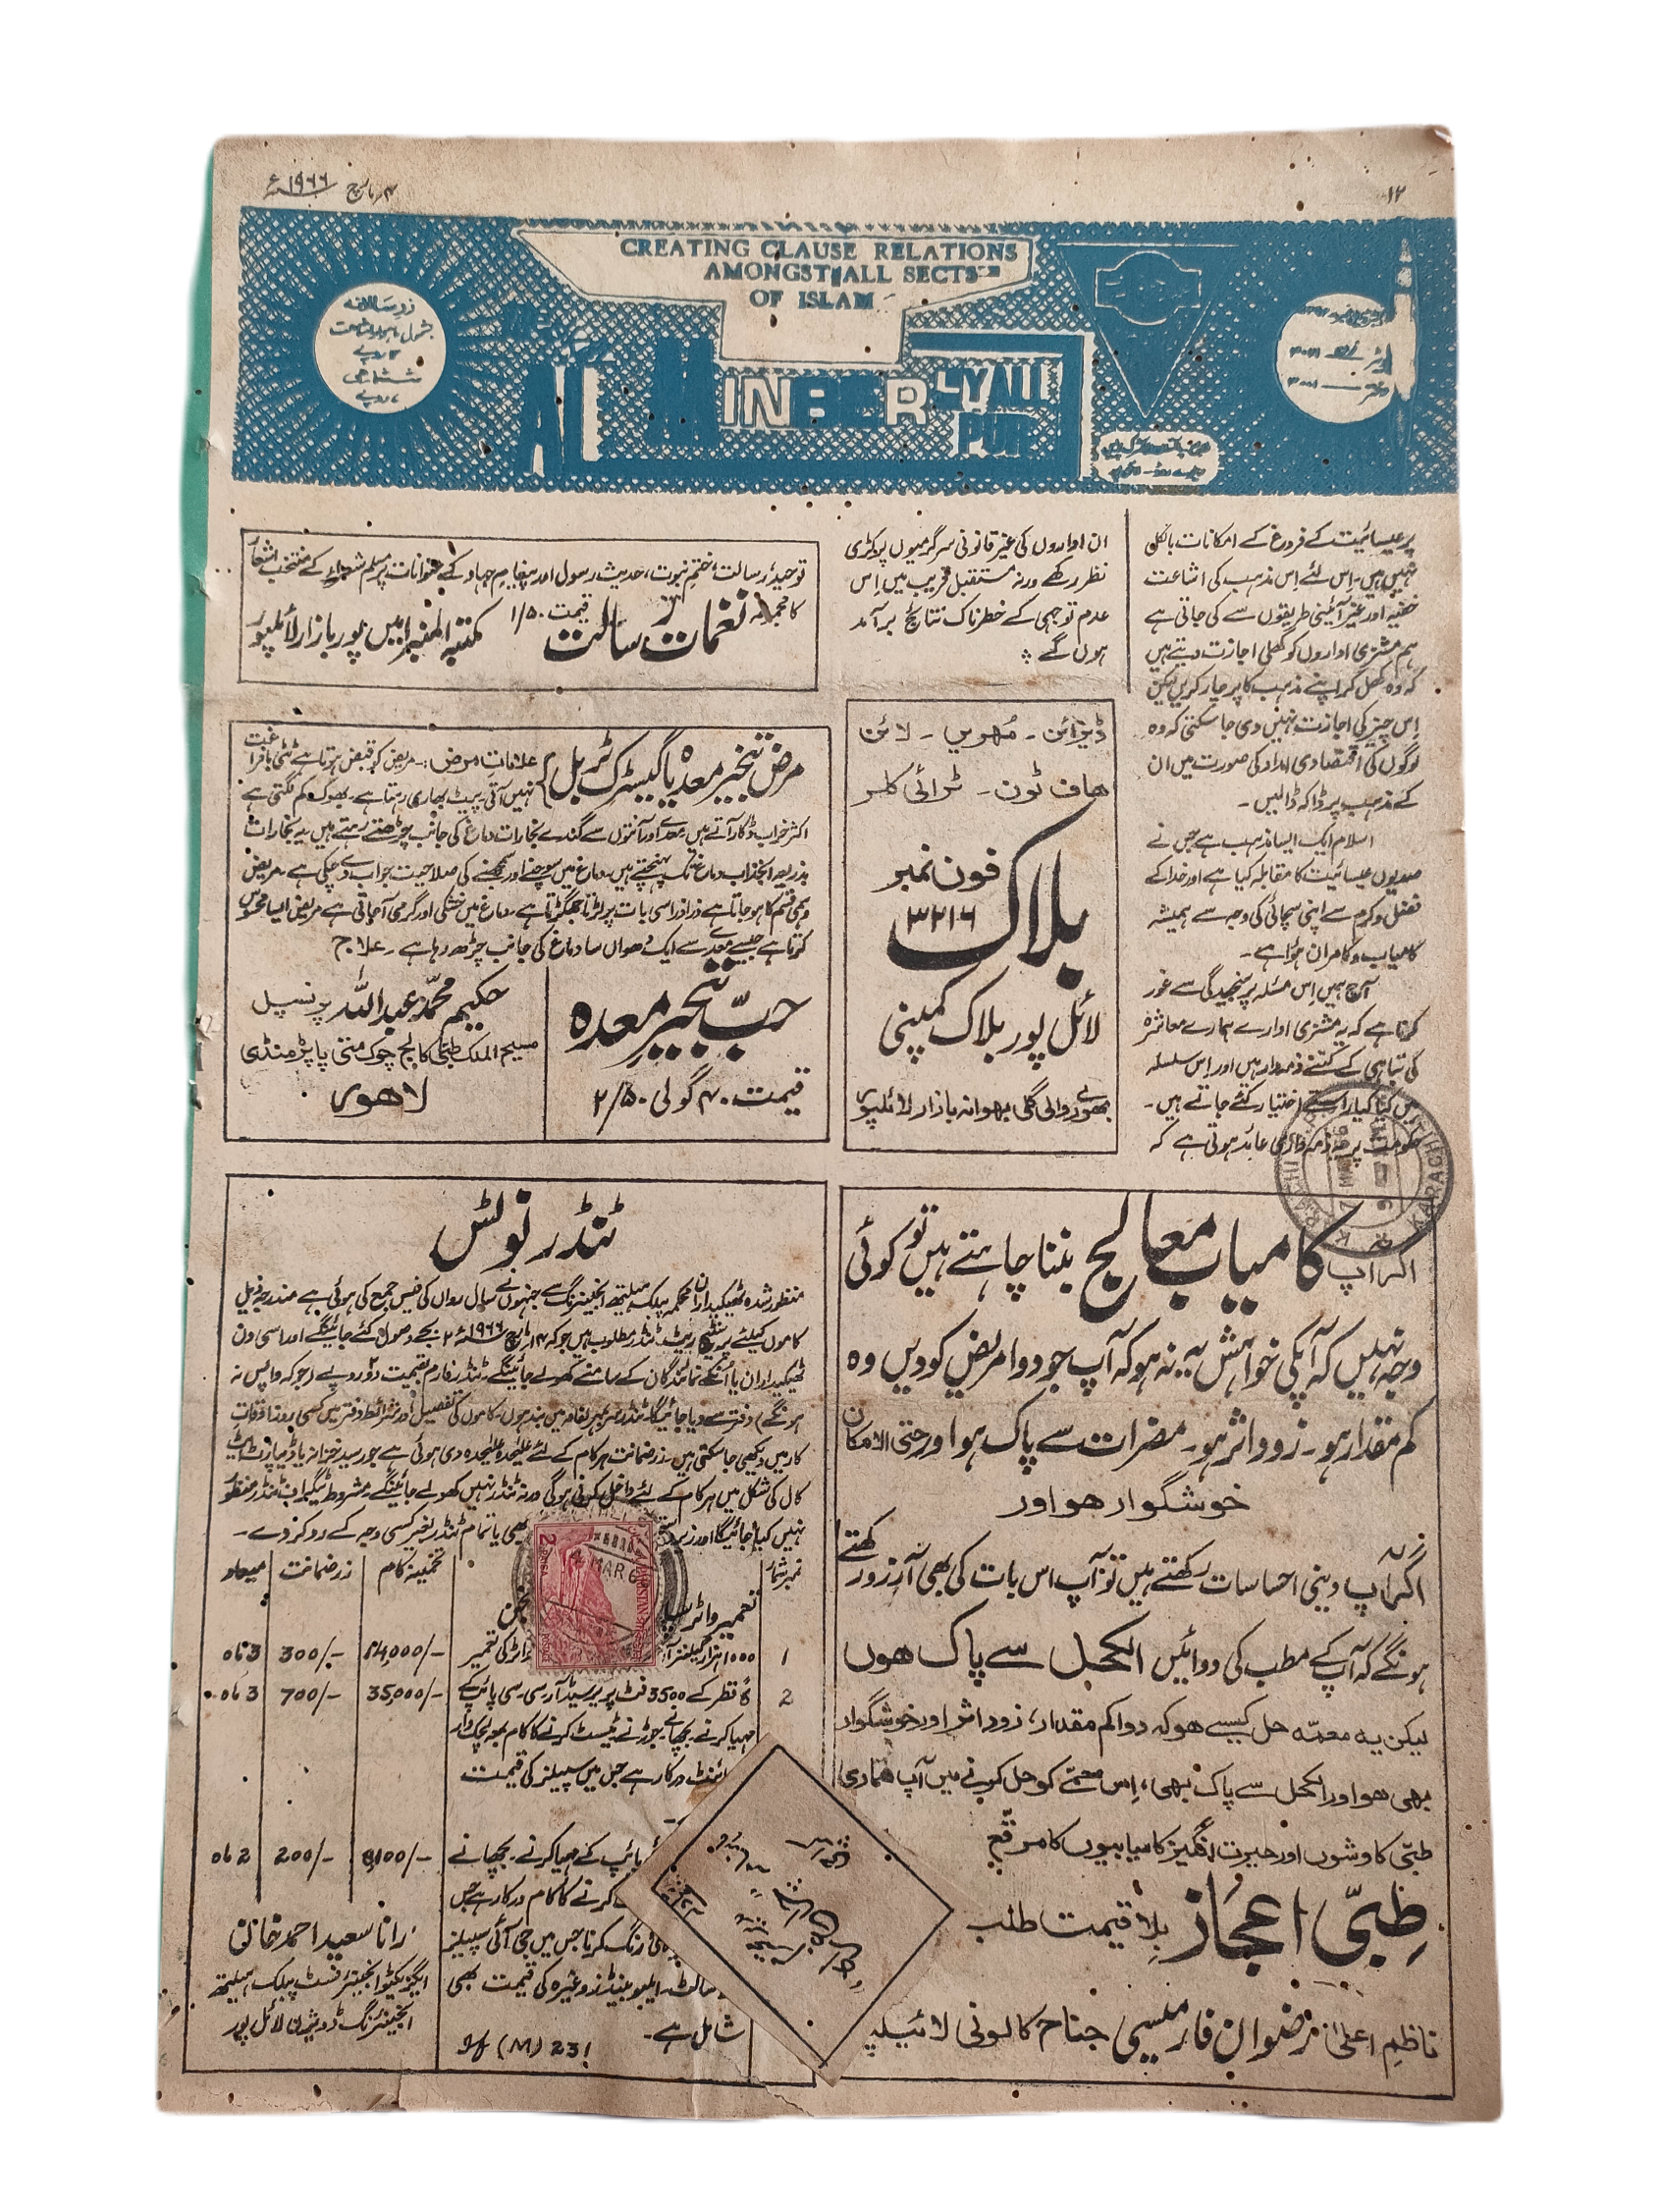 ۱۲
۴ مارچ ۱۹۶۶ء
CREATING CLAUSE RELATIONS
AMONGST ALL SECTS
OF ISLAM
AL MINBER LYALLPUR
زرِ سالانہ
ششماہی
پر عیسائیت کے فروغ کے امکانات بالکل
نہیں ہیں۔ اِس لئے اِس مذہب کی اشاعت
خفیہ اور غیر آئینی طریقوں سے کی جاتی ہے
ہم مشنری اداروں کو کھلی اجازت دیتے ہیں
کہ وہ کھل کر اپنے مذہب کا پرچار کریں لیکن
اِس چیز کی اجازت نہیں دی جا سکتی کہ وہ
لوگوں کی اقتصادی امداد کی صورت میں ان
کے مذہب پر ڈاکہ ڈالیں۔
اسلام ایک ایسا مذہب ہے جس نے
صدیوں عیسائیت کا مقابلہ کیا ہے اور خدا کے
فضل و کرم سے اپنی سچائی کی وجہ سے ہمیشہ
کامیاب و کامران ہوا ہے۔
آج ہمیں اِس مسئلہ پر سنجیدگی سے غور
کرنا ہے کہ یہ مشنری ادارے ہمارے معاشرہ
کی تباہی کے کتنے ذمہ دار ہیں اور اِس سلسلہ
میں کیا کیا راستے اختیار کئے جاتے ہیں۔
حکومت پر یہ ذمہ داری عائد ہوتی ہے کہ
ان اداروں کی غیر قانونی سرگرمیوں پر کڑی
نظر رکھے ورنہ مستقبل قریب میں اِس
عدم توجہی کے خطرناک نتائج برآمد
ہوں گے
توحید، رسالت، ختم نبوت، حدیث رسول اور پیغام جہاد کے عنوانات پر مسلم شعراء کے منتخب اشعار
کا مجموعہ نغمات رسالت قیمت ۱/۵۰ مکتبہ المنبر امین پور بازار لائلپور
ڈیزائن۔ مُہریں۔ لائن
ھاف ٹون۔ ٹرائی کلر
بلاک
فون نمبر
۳۲۱۶
لائل پور بلاک کمپنی
بھوانہ بازار لائلپور
مرض تبخیر معدہ یا گیسٹرک ٹربل
علامات مرض:۔ مریض کو قبض ہوتا ہے ٹٹی بافراغت
نہیں آتی۔ پیٹ بھاری رہتا ہے۔ بھوک کم لگتی ہے
اکثر خراب ڈکار آتے ہیں معدے اور آنتوں سے گندے بخارات دماغ کی جانب چڑھتے رہتے ہیں یہ بخارات
بذریعہ انجذاب دماغ تک پہنچتے ہیں۔ دماغ میں سوچنے اور سمجھنے کی صلاحیت جواب دے چکی ہے۔ مریض
وہمی قسم کا ہو جاتا ہے ذرا ذرا سی بات پر لڑتا جھگڑتا ہے۔ دماغ میں خشکی اور گرمی آ جاتی ہے مریض ایسا محسوس
کرتا ہے جیسے معدے سے ایک دھواں سا دماغ کی جانب چڑھ رہا ہے۔ علاج
حبّ تبخیر معدہ
قیمت ۴۰ گولی ۲/۵۰
حکیم محمد عبداللہ پرنسپل
مسیح الملک طبی کالج چوک متی پاپڑ منڈی
لاھور
ٹنڈر نوٹس
منظور شدہ ٹھیکیداران محکمہ پبلک ہیلتھ انجینئرنگ سے جنہوں نے سال رواں کی فیس جمع کی ہوئی ہے مندرجہ ذیل
کاموں کیلئے پرسنٹیج ریٹ ٹنڈر مطلوب ہیں جو کہ ۱۴ مارچ ۱۹۶۶ء ۲ بجے وصول کئے جائینگے اور اسی دن
ٹھیکیداران یا انکے نمائندگان کے سامنے کھولے جائینگے۔ ٹنڈر فارم بقیمت دو روپے (جو کہ واپس نہ
ہونگے) دفتر سے دیا جائیگا۔ ٹنڈر سر بمہر لفافہ میں بند ہوں۔ کاموں کی تفصیل اور شرائط دفتر میں کسی روز اوقات
کار میں دیکھی جا سکتی ہیں۔ زرضمانت ہر کام کے لئے علیحدہ علیحدہ دی ہوئی ہے جو رسید خزانہ یا ڈیپازٹ ایٹ
کال کی شکل میں ہر کام کے لئے داخل کرنی ہوگی ورنہ ٹنڈر نہیں کھولے جائینگے۔ مشروط ٹیلیگراف ٹنڈر منظور
نہیں کیا جائیگا اور زیر بھی یا تمام ٹنڈر بغیر کسی وجہ کے رد کر دے۔
نمبر شمار تخمینہ کام زرضمانت میعاد
تعمیر واٹر
1 کی تعمیر 14,000/- 300/- 3 ماہ
2 قطر کے 3500 فٹ پریسٹڈ آر۔سی۔سی پائپ 35,000/- 700/- 3 ماہ
مہیا کرنے۔ بچھانے۔ جوڑنے ٹیسٹ کرنے کا کام
درکار ہے جس میں سپیلز کی قیمت
پائپ کے مہیا کرنے۔ بچھانے 8,100/- 200/- 2 ماہ
کرنے کا کام درکار ہے جس
کرنا جس میں جی آئی سپیلز
وغیرہ کی قیمت بھی
شامل ہے۔
رانا سعید احمد خان
ایگزیکٹو انجینئر فسٹ پبلک ہیلتھ
انجینئرنگ ڈویژن لائل پور
اگر آپ کامیاب معالج بننا چاہتے ہیں تو کوئی
وجہ نہیں کہ آپکی خواہش یہ نہ ہو کہ آپ جو دوا مریض کو دیں وہ
کم مقدار ہو۔ زود اثر ہو۔ مضرات سے پاک ہو اور حتی الامکان
خوشگوار ھو اور
اگر آپ دینی احساسات رکھتے ہیں تو آپ اس بات کی بھی آرزو رکھتے
ہونگے کہ آپ کے مطب کی دوائیں الکحل سے پاک ھوں
لیکن یہ معمّہ حل کیسے ھو کہ دوا کم مقدار، زود اثر اور خوشگوار
بھی ھو اور الکحل سے پاک بھی، اِس معمے کو حل کرنے میں آپ ھماری
طبّی کاوشوں اور حیرت انگیز کامیابیوں کا مرقع
طِبّی اعجاز بلا قیمت طلب
ناظم اعلیٰ رضوان فارمیسی جناح کالونی لائیلپور